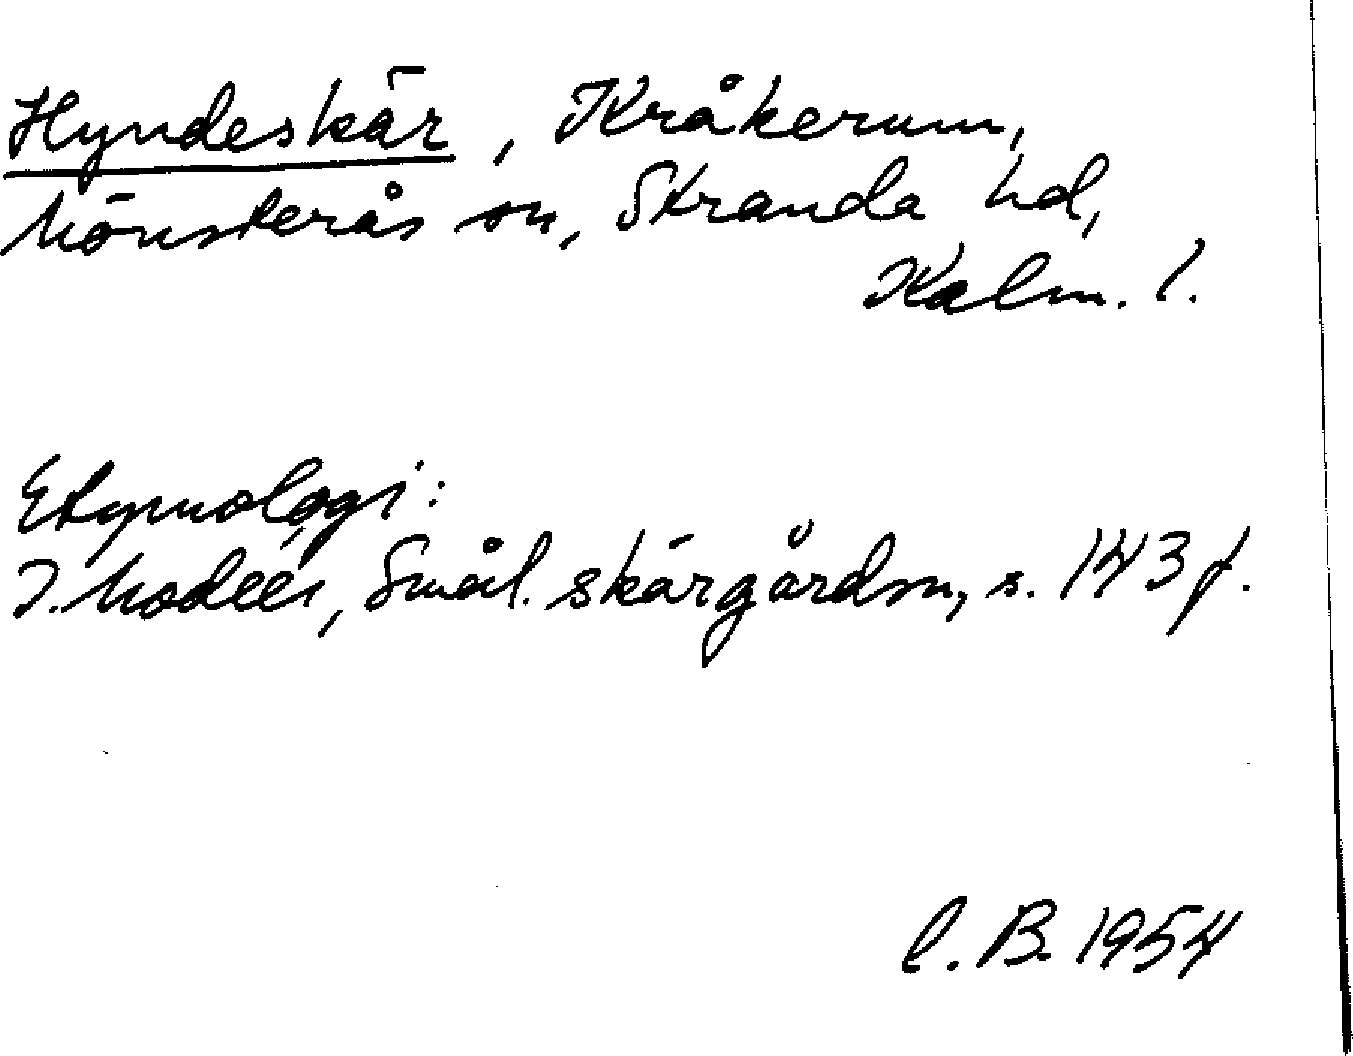 Hyndeskär, Kråkerum,
Mönsterås sn, Stranda hd,
Kalm. l.
Etymologi:
I. Modéer, Smål. skärgårdsn, s. 143 f.
C. B. 1954